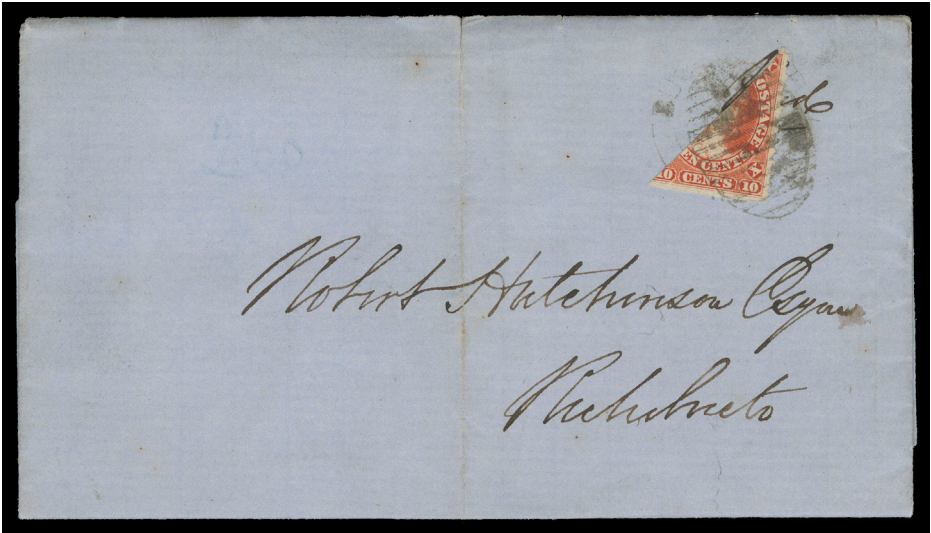 Paid
POSTAGE
EN CENTS
10 CENTS 10
Robert Hutchinson Esquire
Richibucto